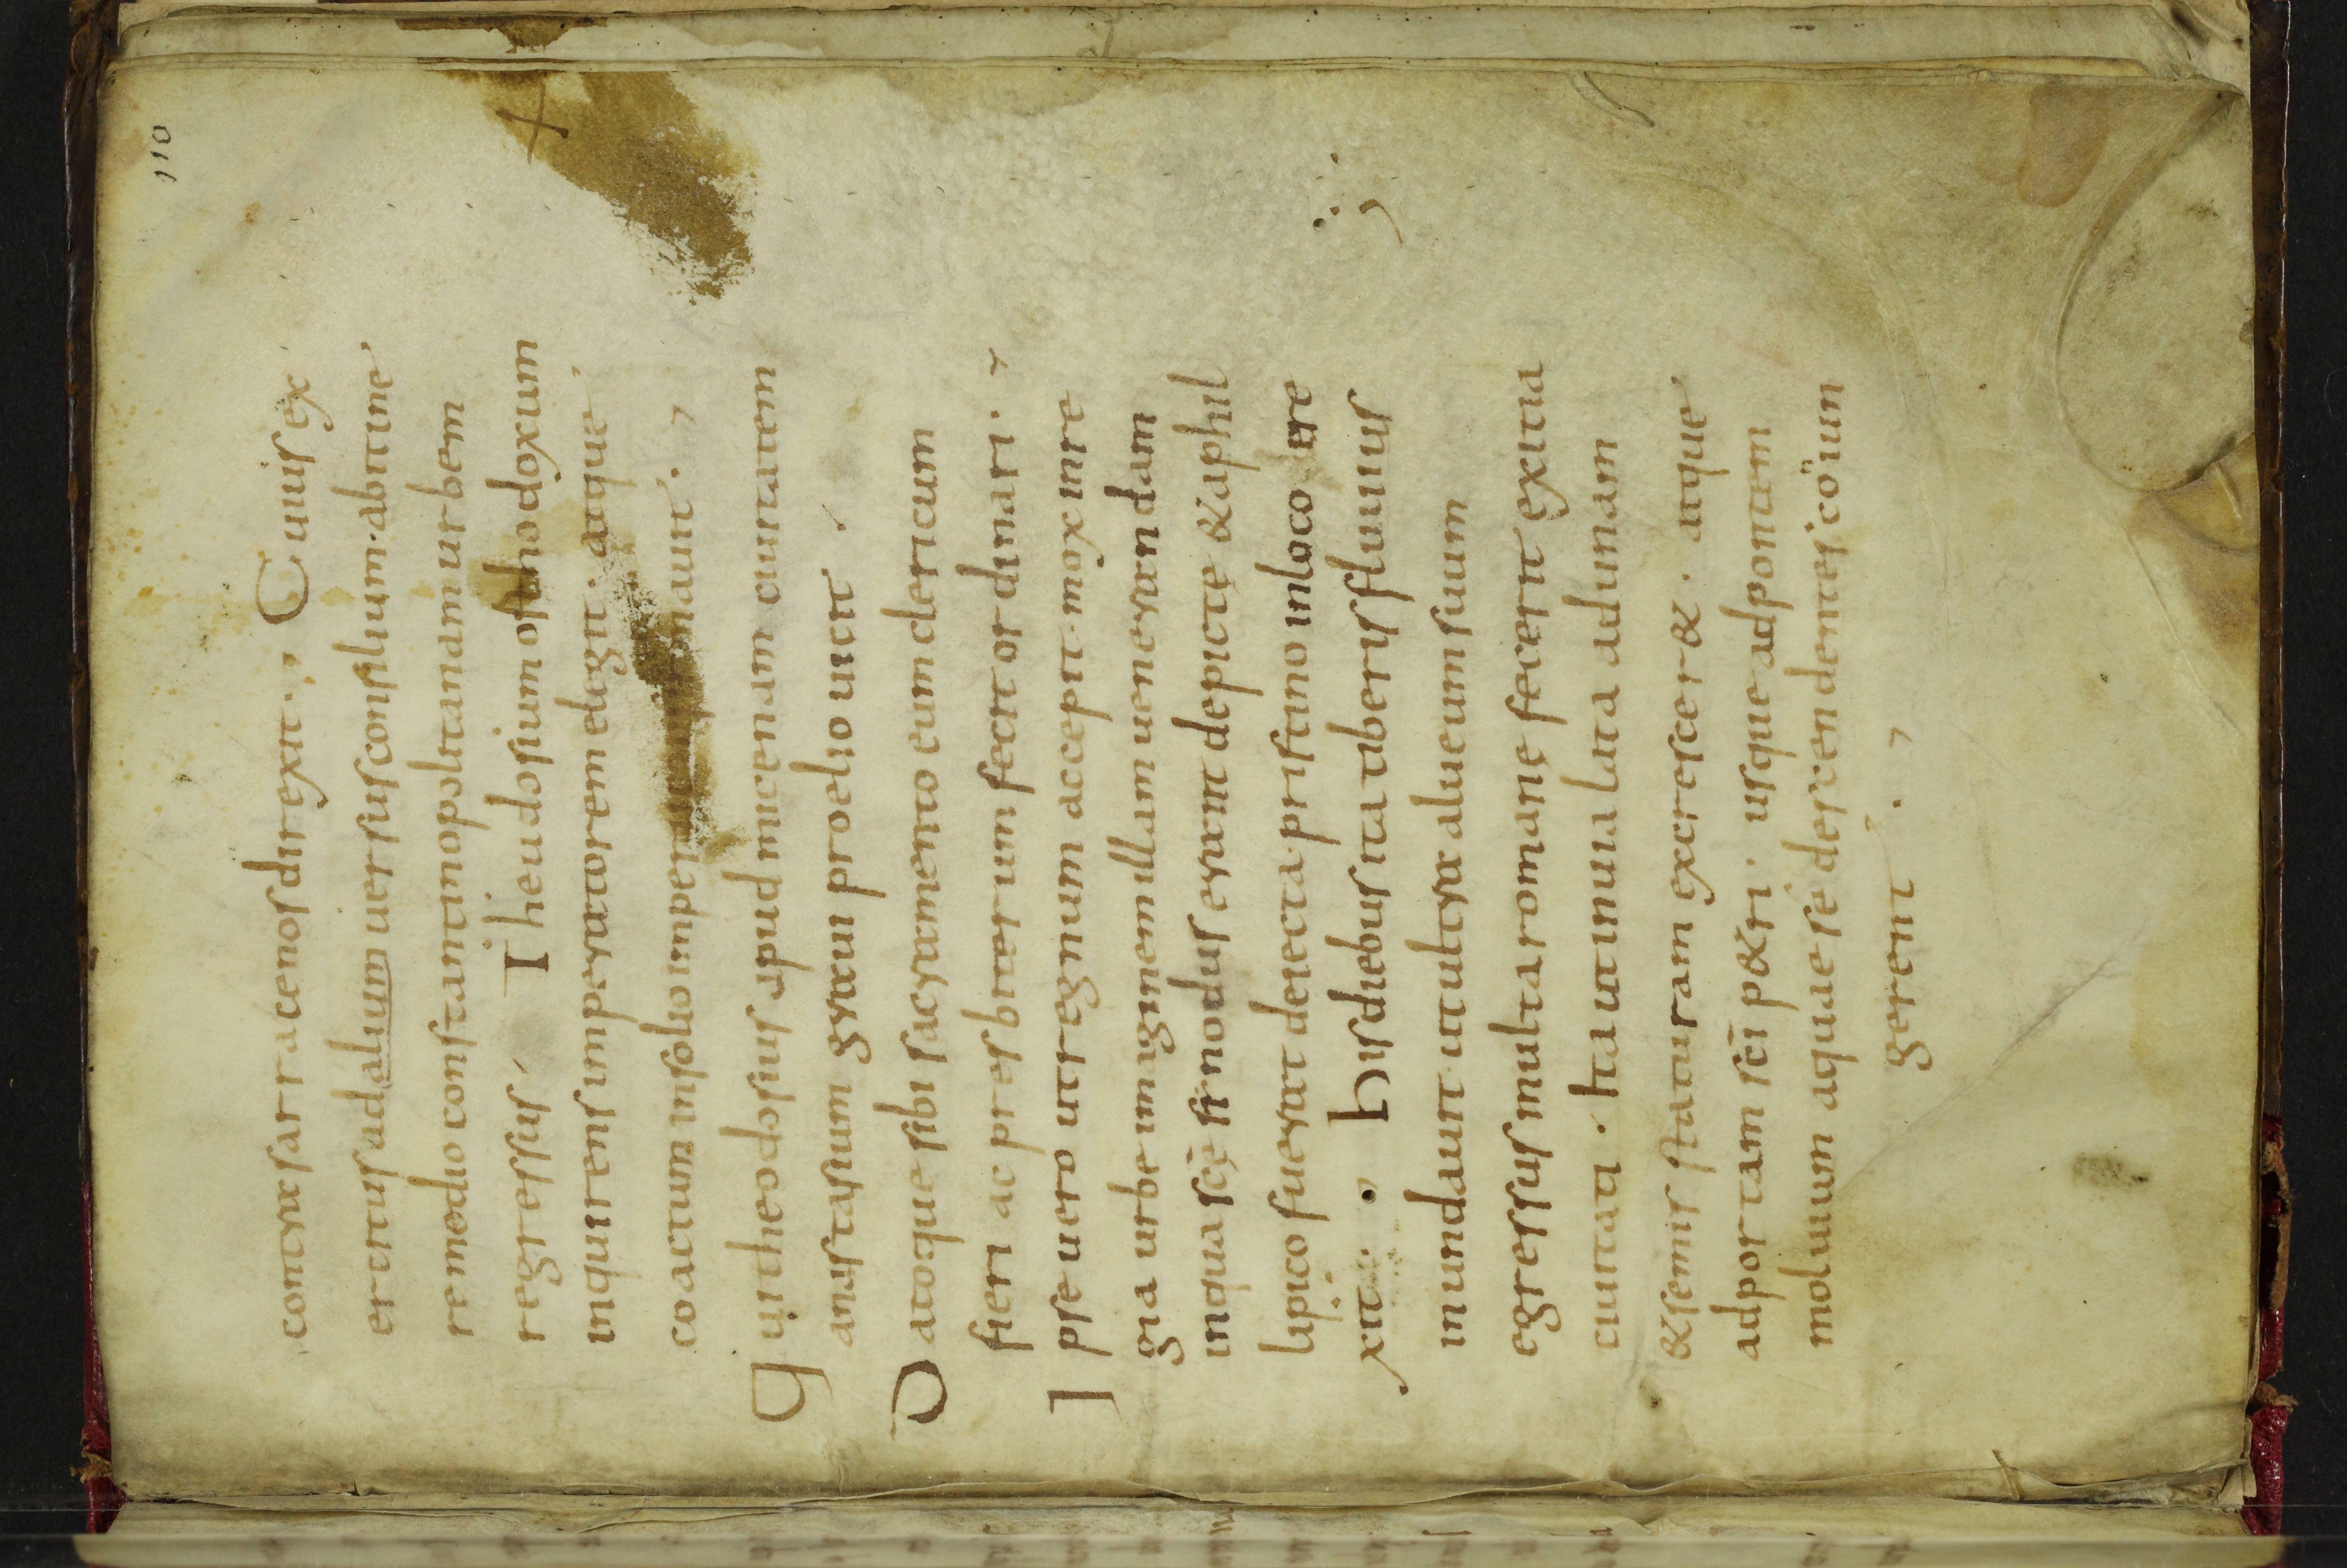 110
contra sarracenos direxit. Cuius ex
ercitus ad alium uersus consilium. ab itine
remedio constantinopolitanam urbem
regressus Theudosium osthodoxum
inquirens imperatorem elegit. atque
coactum insolio imperii confirmauit.
qui theodosius apud nicenam ciuitatem
anastasium graui proelio uicit
Datoque sibi sacramento eum clericum
fieri ac presbiterum fecit ordinari.
Ipse uero ut regnum accepit. mox in re
gia urbe imaginem illam uenerandam
in qua scē sinodus erant depictę & aphil
lipico fuerat deiecta pristino in loco ere
xit. His diebus ita tiberis fluuius
inundauit ut ultra alueum suum
egressus multa romanę fecerit exitia
ciuitati. Ita ut in uia lata ad unam
& semis staturam excresceret. atque
ad portam sci petri. usque ad pontem
moluium aquae se descendentes coniun
gerent.